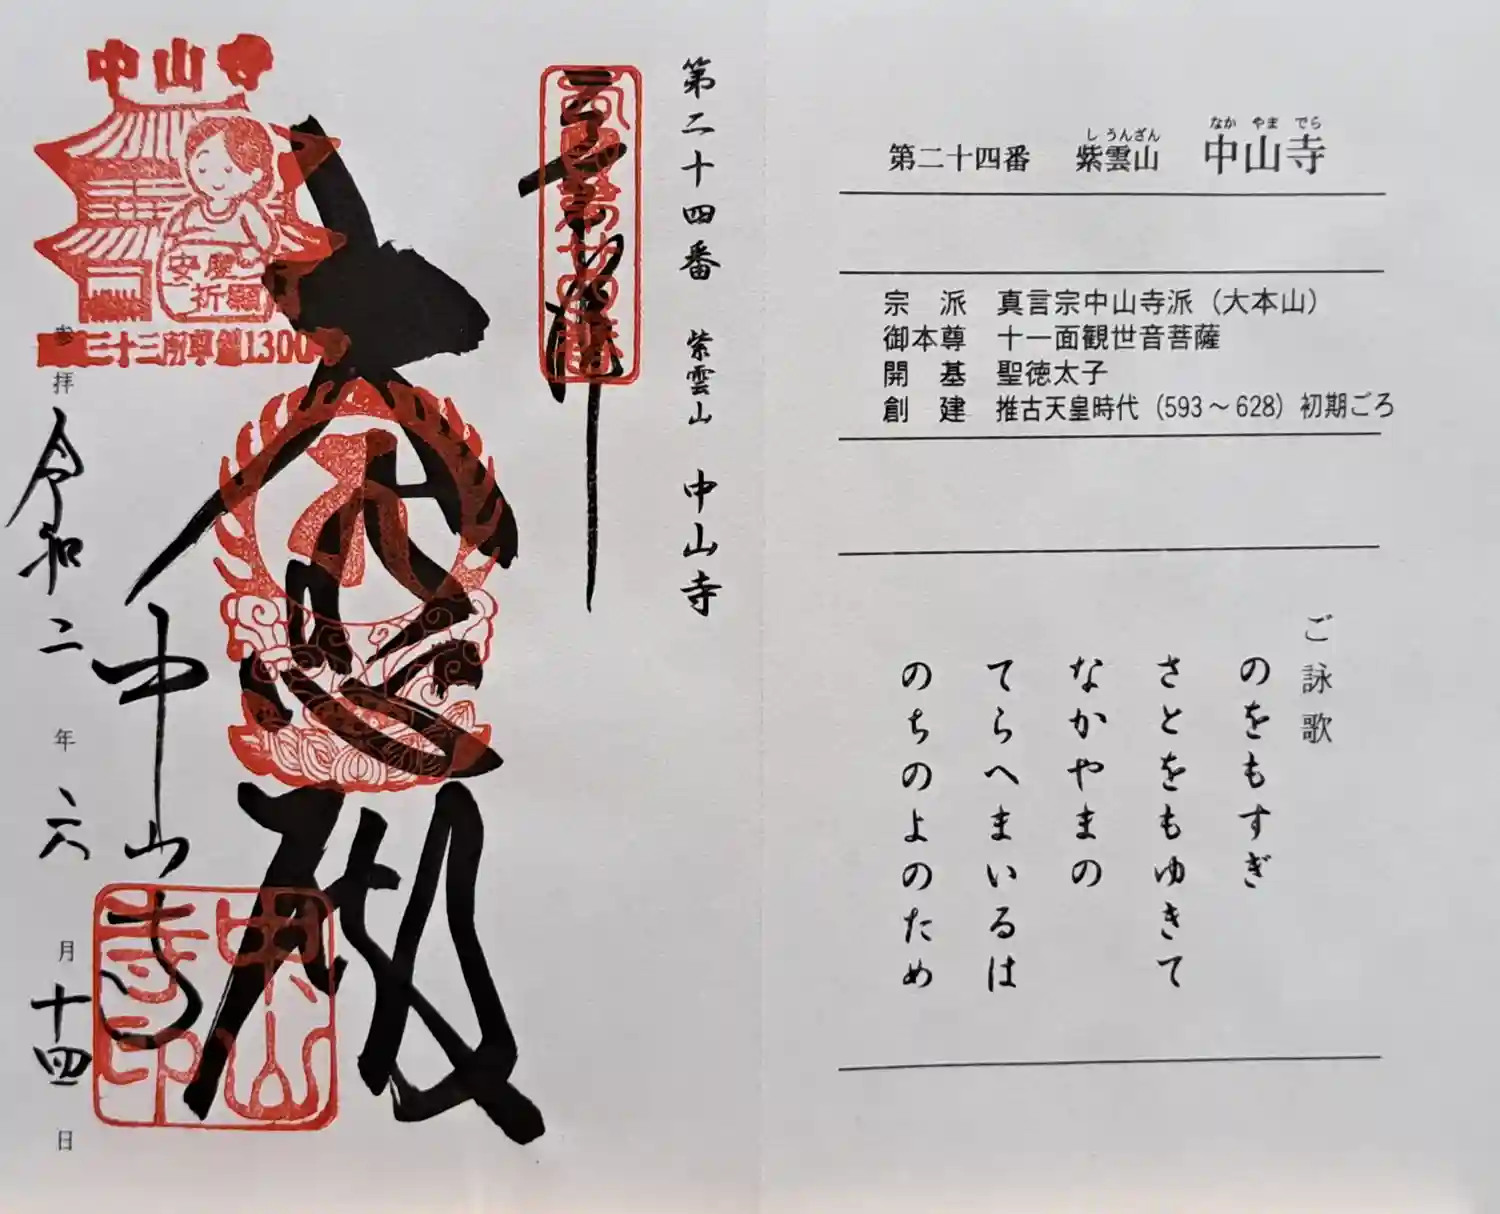 第二十四番 紫雲山 中山寺
しうんざん
なかやまでら
宗派 真言宗中山寺派（大本山）
御本尊 十一面観世音菩薩
開基 聖徳太子
創建 推古天皇時代（593～628）初期ごろ
ご詠歌
のをもすぎ
さとをもゆきて
なかやまの
てらへまいるは
のちのよのため
第二十四番 紫雲山 中山寺
奉拝
大悲殿
中山寺
中山寺
安産
祈願
三十三所草創1300年
中山寺印
参拝 令和二年六月十四日